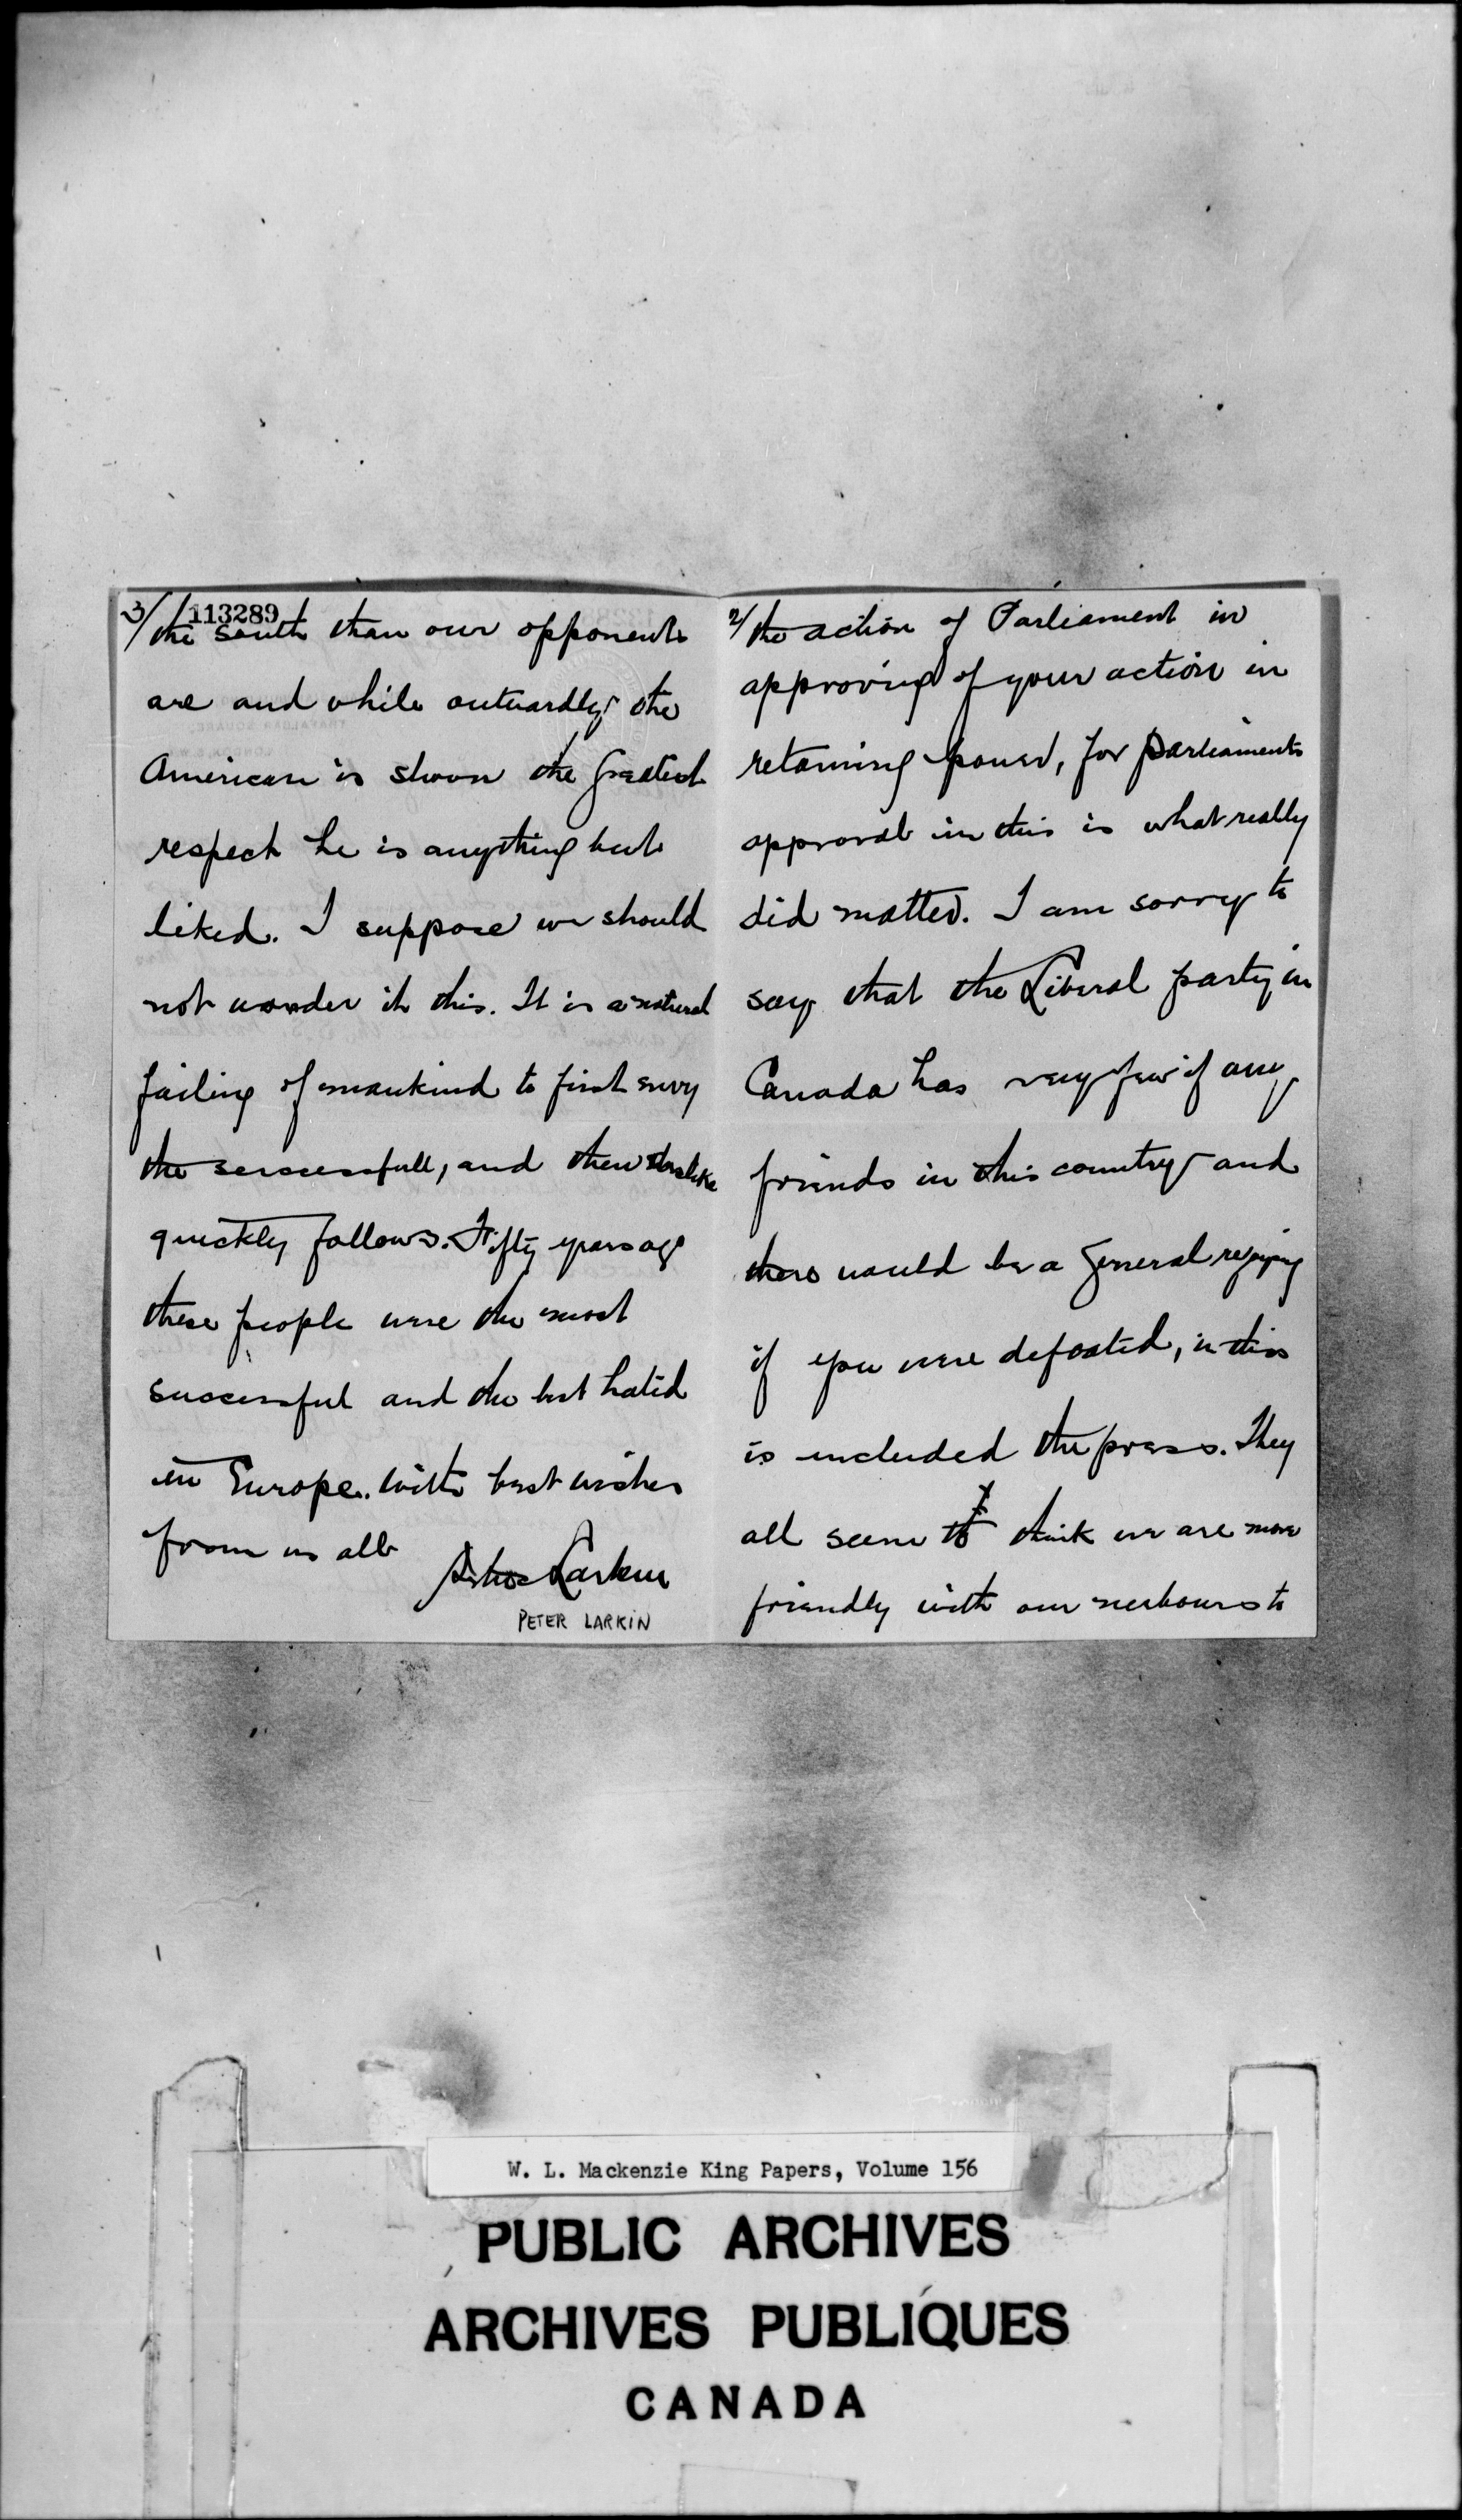 2/ the action of Parliament in
approving of your action in
retaining power, for Parliaments
approval in this is what really
did matter. I am sorry to
say that the Liberal party in
Canada has very few if any
friends in this country and
there would be a general rejoicing
if you were defeated, in this
is included the press. They
all seem to think we are more
friendly with our neibours to
3/ 113289
the south than our opponents
are and while outwardly the
American is shown the greatest
respect he is anything but
liked. I suppose we should
not wonder it this. It is a natural
failing of mankind to first envy
the successfull, and then dislike
quickly follows. Fifty years ago
these people were the most
successful and the best hated
in Europe. With best wishes
from us all
Larkin
PETER LARKIN
W. L. Mackenzie King Papers, Volume 156
PUBLIC ARCHIVES
ARCHIVES PUBLIQUES
CANADA